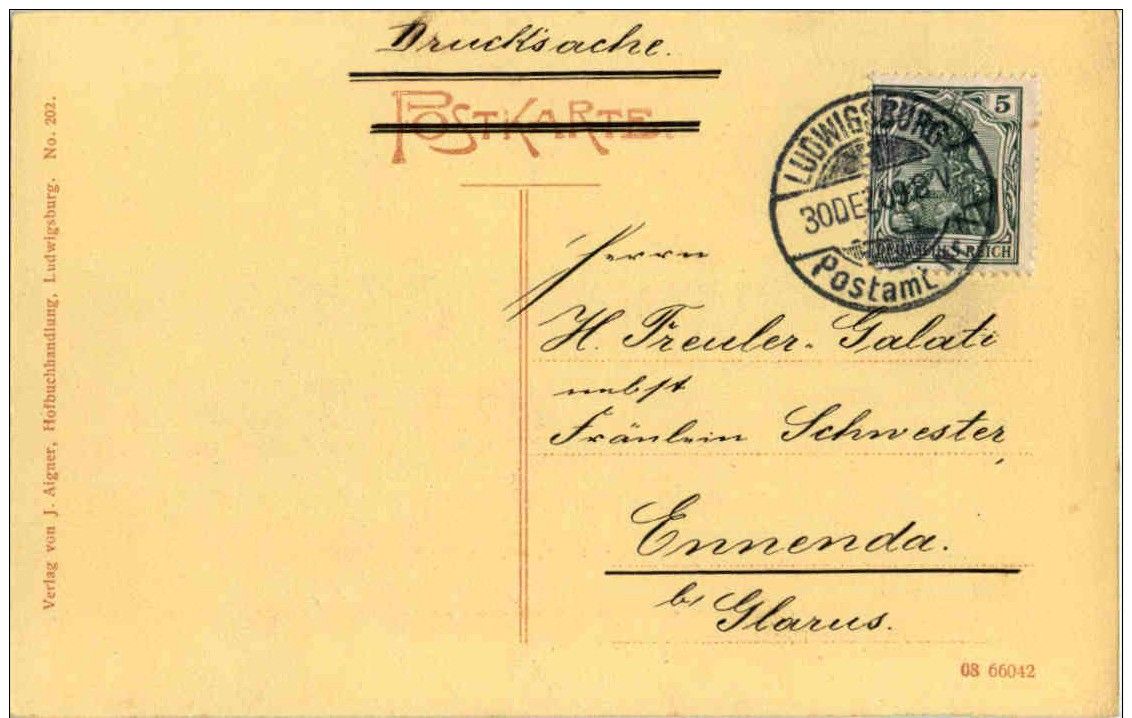 Drucksache.
POSTKARTE.
5
LUDWIGSBURG
30 DEZ 09.8-9V.
Postamt 1
DEUTSCHES REICH
Herrn
H. Treuler-Galati
nebst
Fräulein Schwester,
Ennenda.
b/ Glarus.
08 66042
Verlag von J. Aigner, Hofbuchhandlung, Ludwigsburg. No. 202.